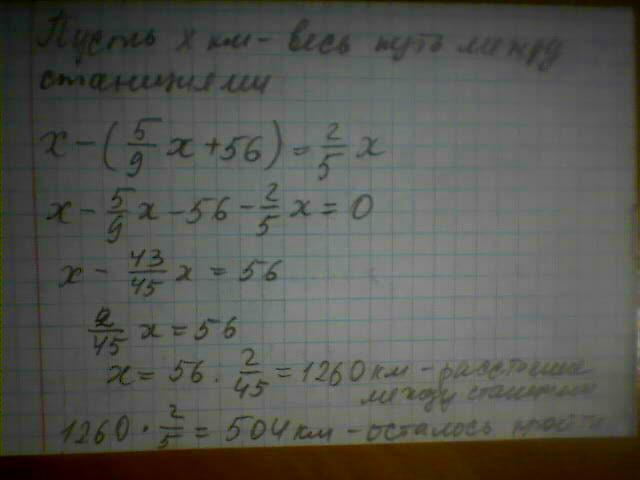 Пусть x км - весь путь между
станциями
x - (5/9 x + 56) = 2/5 x
x - 5/9 x - 56 - 2/5 x = 0
x - 43/45 x = 56
2/45 x = 56
x = 56 . 2/45 = 1260 км - расстояние
между станциями
1260 · 2/5 = 504 км - осталось пройти